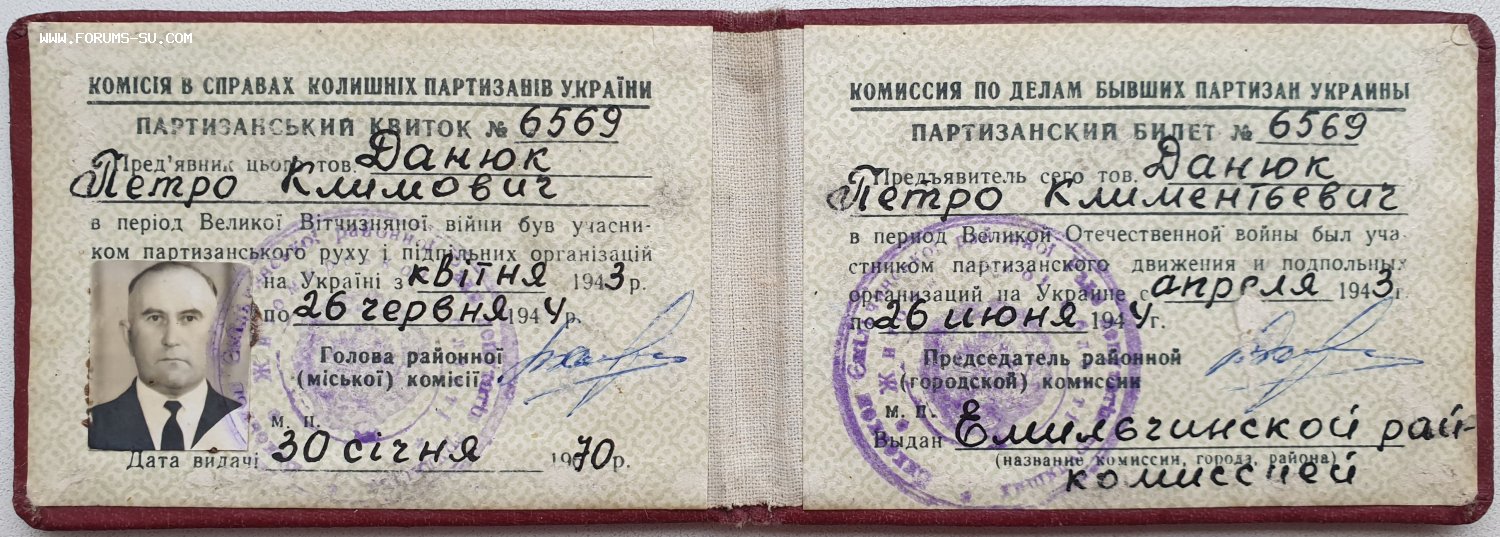 WWW.FORUMS-SU.COM
КОМІСІЯ В СПРАВАХ КОЛИШНІХ ПАРТИЗАНІВ УКРАЇНИ
ПАРТИЗАНСЬКИЙ КВИТОК № 6569
Пред'явник цього тов. Данюк
Петро Климович
в період Великої Вітчизняної війни був учасни-
ком партизанського руху і підпільних організацій
на Україні з квітня 1943 р.
по 26 червня 1944 р.
Голова районної
(міської) комісії
М. П.
30 січня
Дата видачі 1970 р.
КОМИССИЯ ПО ДЕЛАМ БЫВШИХ ПАРТИЗАН УКРАИНЫ
ПАРТИЗАНСКИЙ БИЛЕТ № 6569
Предъявитель сего тов. Данюк
Петро Климентьевич
в период Великой Отечественной войны был уча
стником партизанского движения и подпольных
организаций на Украине с апреля 1943 г.
по 26 июня 1944 г.
Председатель районной
(городской) комиссии
М. П.
Выдан Емильчинской рай-
(название комиссии, города, района)
комиссией